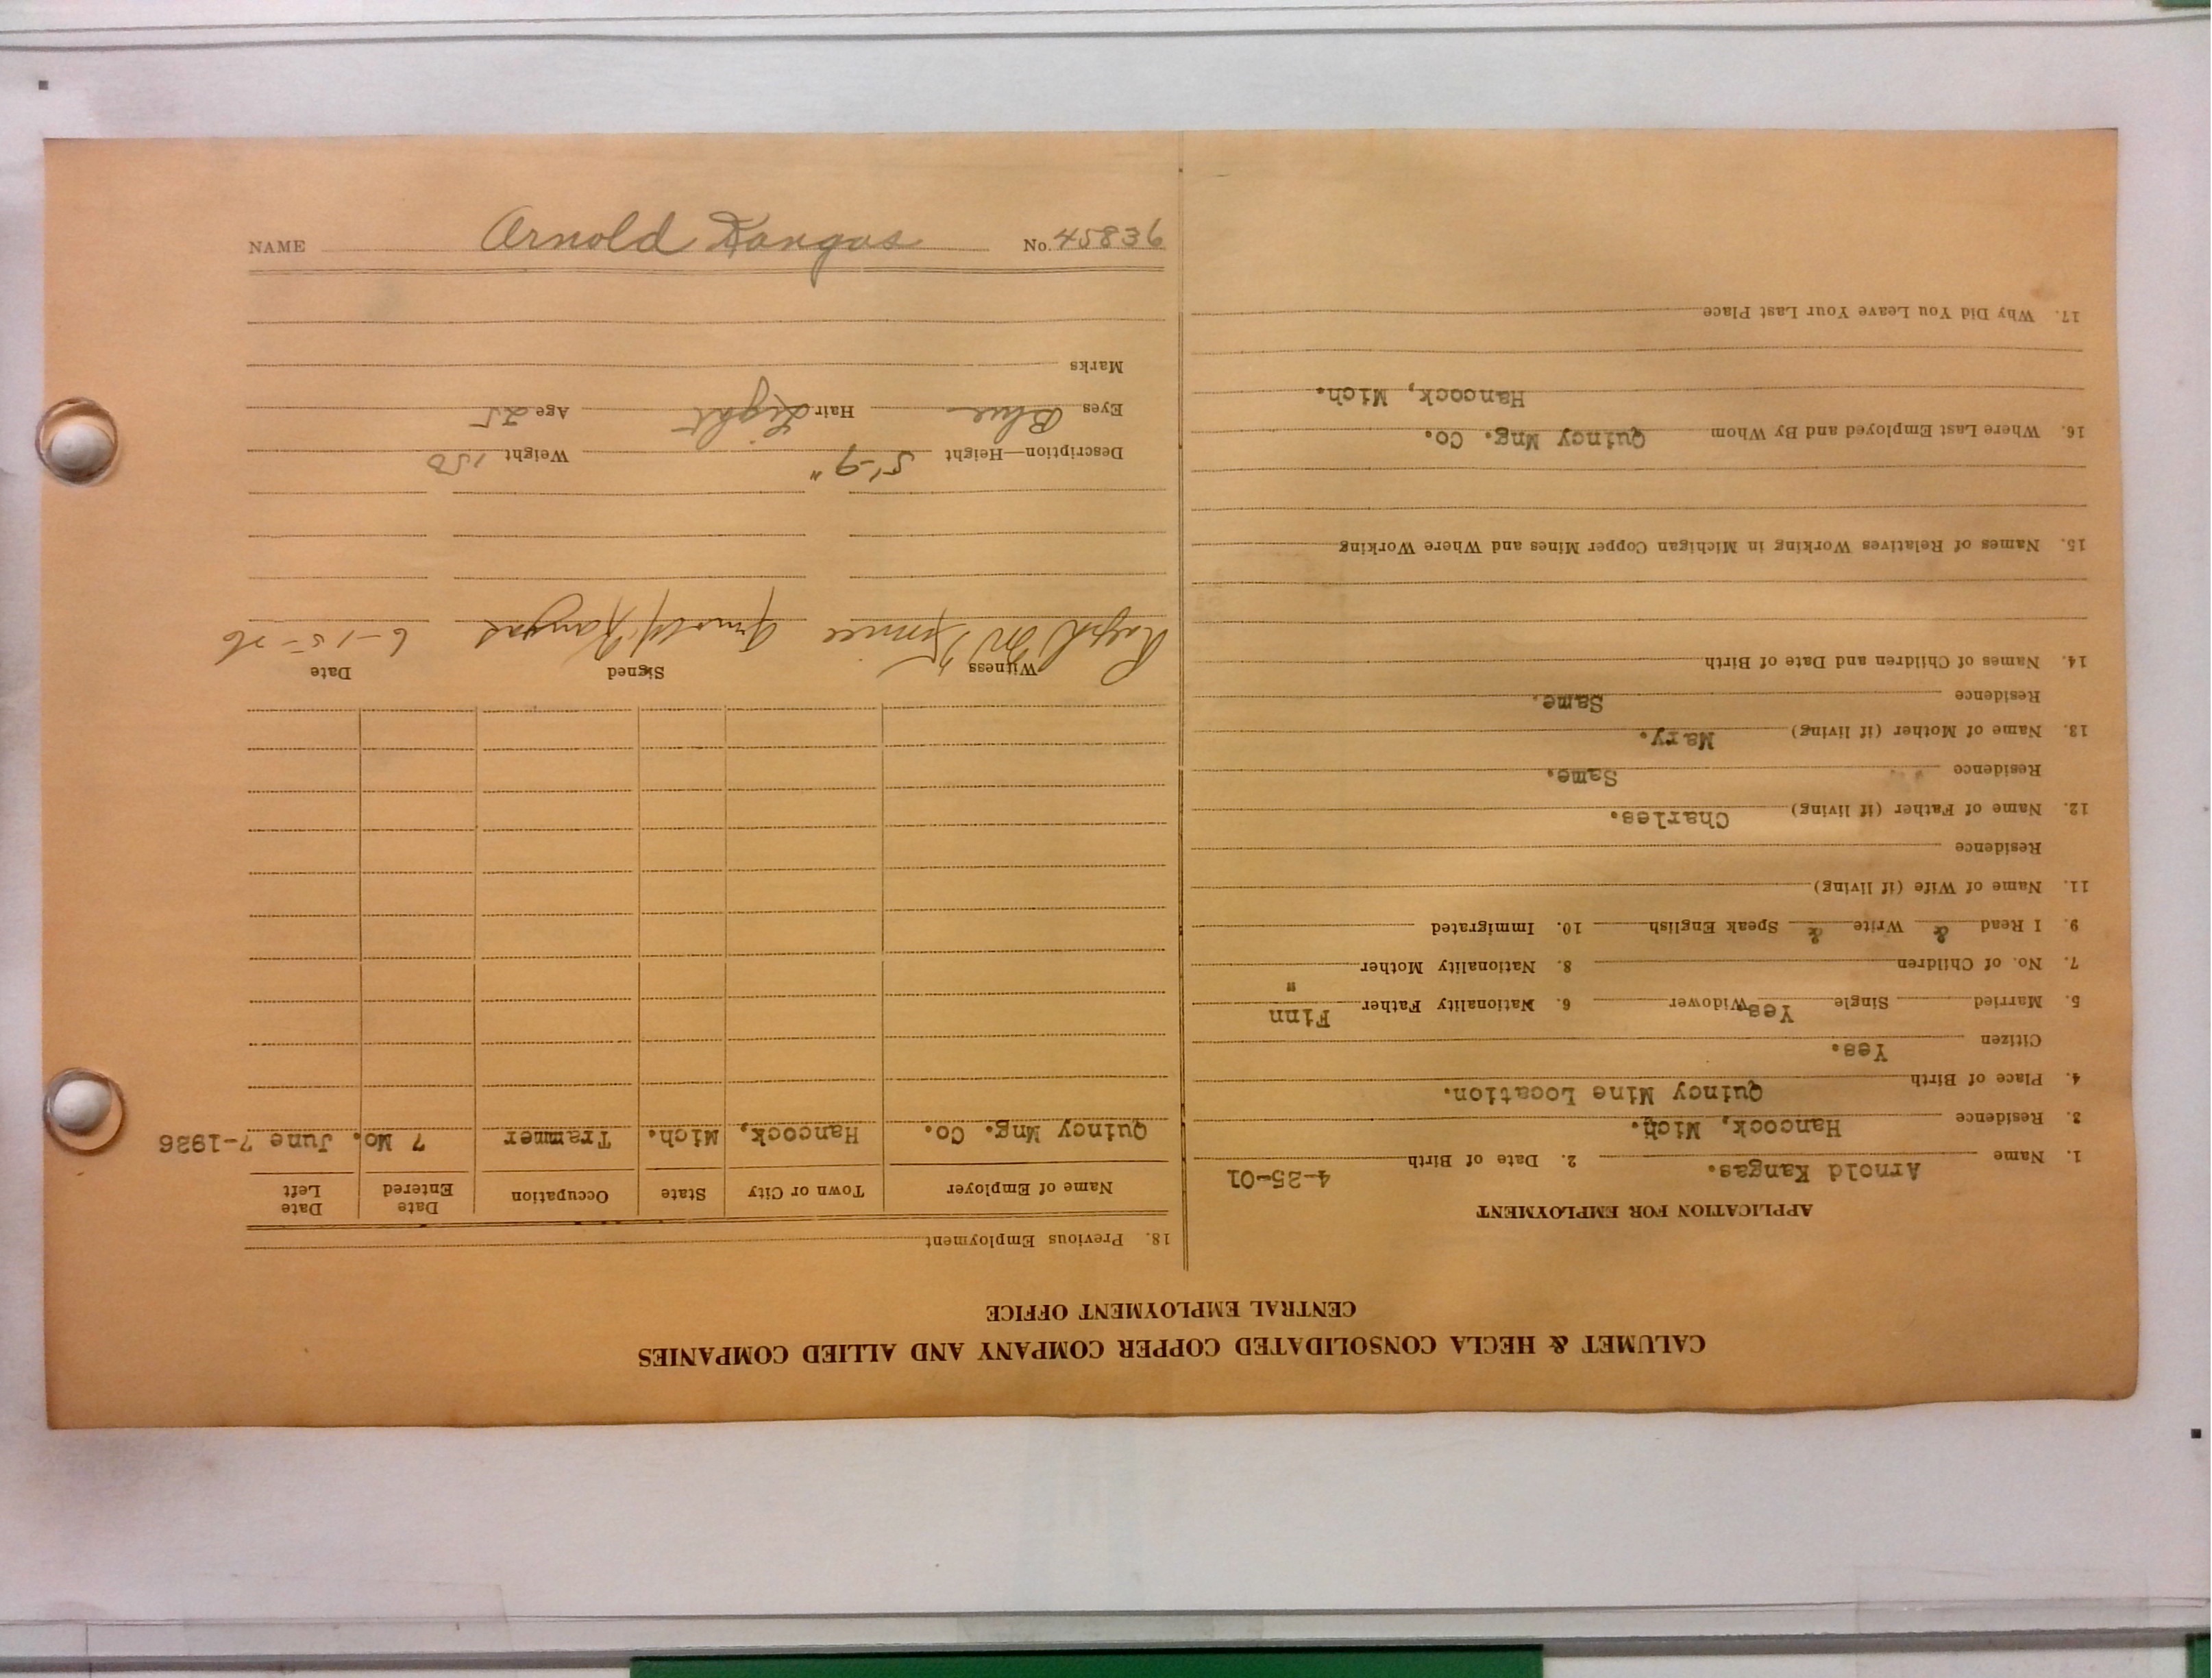 NAME Arnold Kangas No. 45836
CALUMET & HECLA CONSOLIDATED COPPER COMPANY AND ALLIED COMPANIES
CENTRAL EMPLOYMENT OFFICE
APPLICATION FOR EMPLOYMENT
1. Name Arnold Kangas. 2. Date of Birth 4-25-01
3. Residence Hancock, Mich.
4. Place of Birth Quincy Mine Location.
Citizen Yes.
5. Married Single Yes Widower 6. Nationality Father Finn
7. No. of Children 8. Nationality Mother "
9. I Read & Write & Speak English 10. Immigrated
11. Name of Wife (if living)
Residence
12. Name of Father (if living) Charles.
Residence Same.
13. Name of Mother (if living) Mary.
Residence Same.
14. Names of Children and Date of Birth
15. Names of Relatives Working in Michigan Copper Mines and Where Working
16. Where Last Employed and By Whom Quincy Mng. Co.
Hancock, Mich.
17. Why Did You Leave Your Last Place
18. Previous Employment
Name of Employer Town or City State Occupation Date Entered Date Left
Quincy Mng. Co. Hancock, Mich. Trammer 7 Mo. June 7-1926
Witness Signed Date
Ralph Arnold Kangas 6-15-26
Description—Height 5'-9" Weight 150
Eyes Blue Hair Light Age 25
Marks